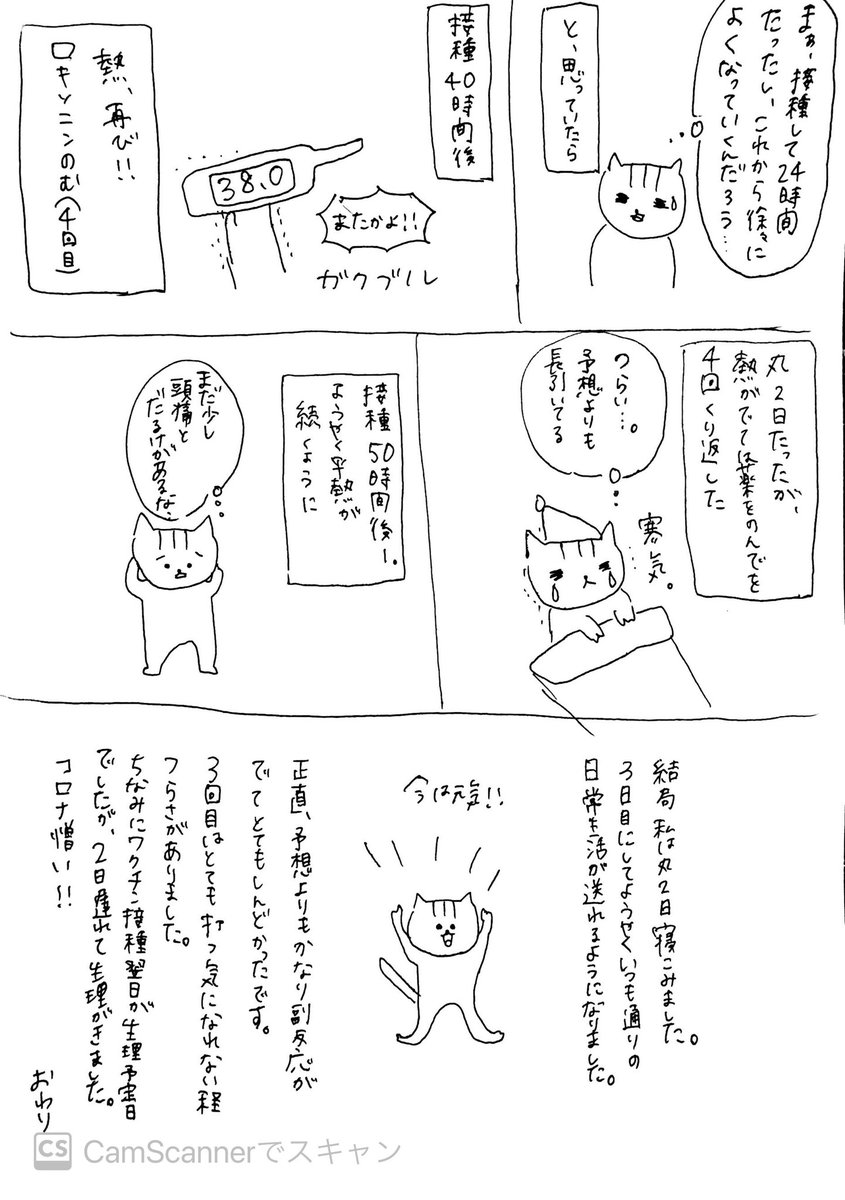 まぁ、接種して24時間
たったしい、これから徐々に
よくなっていくんだろう…
と、思っていたら
接種40時間後
38.0
またかよ!!
ガクブル
熱、再び!!
ロキソニンのむ(4回目)
丸2日たったが、
熱がでては薬をのんでを
4回くり返した
つらい…。
予想よりも
長引いてる
寒気。
接種50時間後〜。
ようやく平熱が
続くように
まだ少し
頭痛と
だるけがあるな、
結局 私は丸2日寝こみました。
3日目にしてようやくいつも通りの
日常生活が送れるようになりました。
今は元気!!
正直、予想よりもかなり副反応が
でてとてもしんどかったです。
3回目はとても打つ気になれない程
つらさがありました。
ちなみにワクチン接種翌日が生理予定日
でしたが、2日遅れて生理がきました。
コロナ憎い!!
おわり
CS CamScannerでスキャン